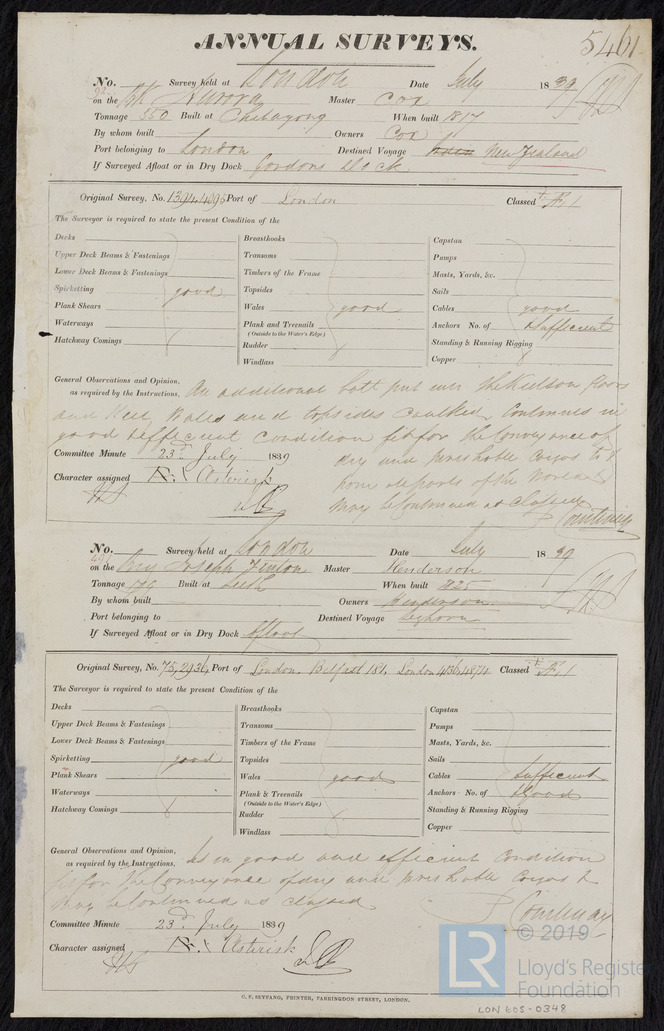 5461
ANNUAL SURVEYS.
No. Survey held at London Date July 1839
on the Aurora Master Cox
Tonnage 550 Built at Chittagong When built 1817
By whom built Owners Cox
Port belonging to London Destined Voyage New Zealand
If Surveyed Afloat or in Dry Dock Gordons Dock
Original Survey, No. Port of London Classed Æ 1
The Surveyor is required to state the present Condition of the
Decks Breasthooks Capstan
Upper Deck Beams & Fastenings Transoms Pumps
Lower Deck Beams & Fastenings Timbers of the Frame Masts, Yards, &c.
Spirketting good Topsides Sails
Plank Shears Wales good Cables good
Waterways Plank and Treenails Anchors No. of Sufficient
(Outside to the Water's Edge)
Hatchway Comings Rudder Standing & Running Rigging
Windlass Copper
General Observations and Opinion, An additional bolt put in the Keelson, floors
as required by the Instructions,
and Keel, Wales and topsides Caulked, Continues in
good & efficient condition fit for the Conveyance of
dry and perishable Cargos to &
from all parts of the World &
may be Continued as Classed
Committee Minute 23d July 1839
Character assigned Æ 1 Asterisk
P Courtenay
No. Survey held at London Date July 1839
on the Joseph Master Henderson
Tonnage Built at Leith When built 1825
By whom built Owners Henderson
Port belonging to Destined Voyage Leghorn
If Surveyed Afloat or in Dry Dock Afloat
Original Survey, No. 75, 2936, Port of London, Belfast 181, London 436, 4874 Classed Æ 1
The Surveyor is required to state the present Condition of the
Decks Breasthooks Capstan
Upper Deck Beams & Fastenings Transoms Pumps
Lower Deck Beams & Fastenings Timbers of the Frame Masts, Yards, &c.
Spirketting good Topsides Sails
Plank Shears Wales good Cables Sufficient
Waterways Plank & Treenails Anchors No. of Good
(Outside to the Water's Edge)
Hatchway Comings Rudder Standing & Running Rigging
Windlass Copper
General Observations and Opinion, Is in good and efficient Condition
as required by the Instructions,
fit for the Conveyance of dry and perishable Cargos &
may be Continued as Classed
P Courtenay
Committee Minute 23d July 1839
Character assigned Æ 1 Asterisk
C. F. SEYFANG, PRINTER, FARRINGDON STREET, LONDON.
LR
© 2019
Lloyd's Register
Foundation
LON 605-0348